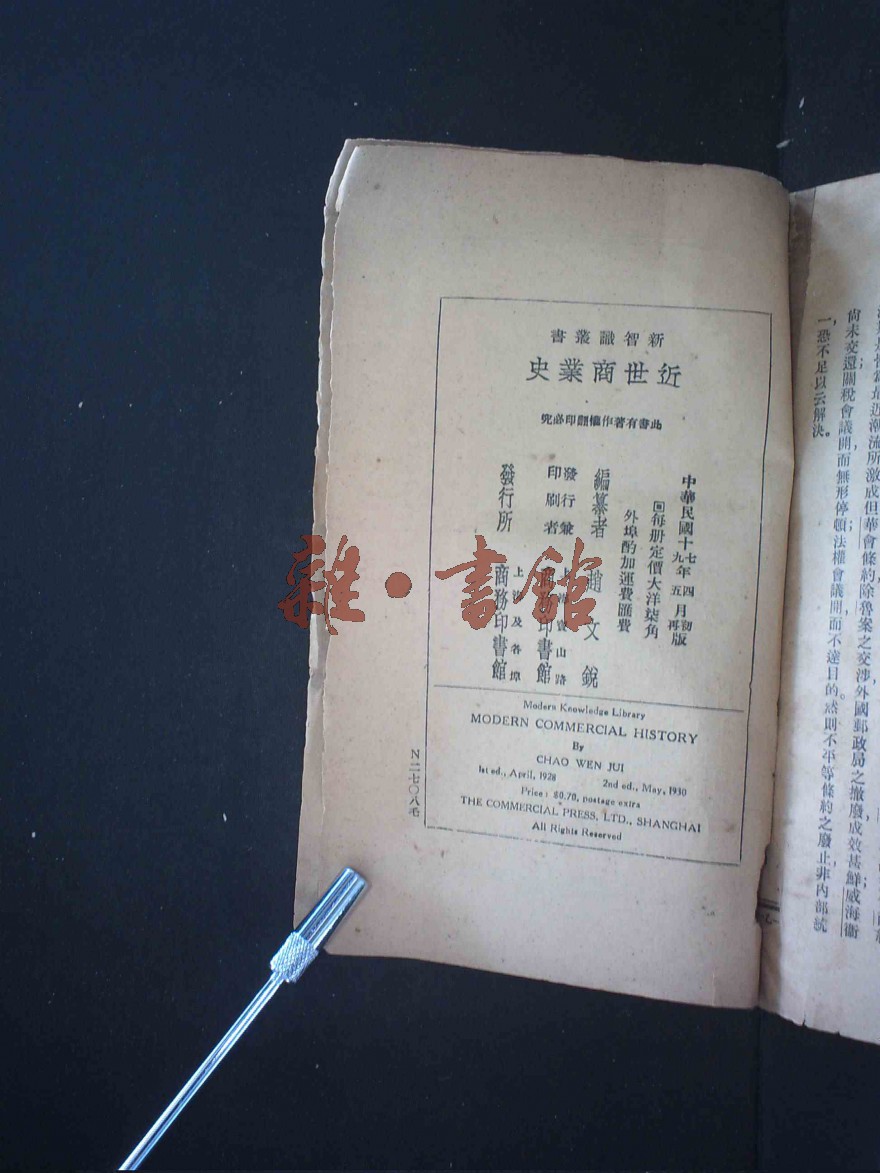 新智識叢書
近世商業史
此書有著作權翻印必究
中華民國十七年四月初版
十九年五月再版
回每册定價大洋柒角
外埠酌加運費匯費
編纂者 趙文銳
發行兼印刷者 上海寶山路 商務印書館
發行所 上海及各埠 商務印書館
Modern Knowledge Library
MODERN COMMERCIAL HISTORY
By
CHAO WEN JUI
1st ed., April, 1928 2nd ed., May, 1930
Price: $0.70, postage extra
THE COMMERCIAL PRESS, LTD., SHANGHAI
All Rights Reserved
N二七〇八毛
雜·書館
所激成但華會條約除魯案之交涉外國郵政局之撤廢成效甚鮮威海衞
尚未交還關稅會議開而無形停頓法權會議開而不達目的。然則不平等條約之廢止非內部統
一,恐不足以云解決。